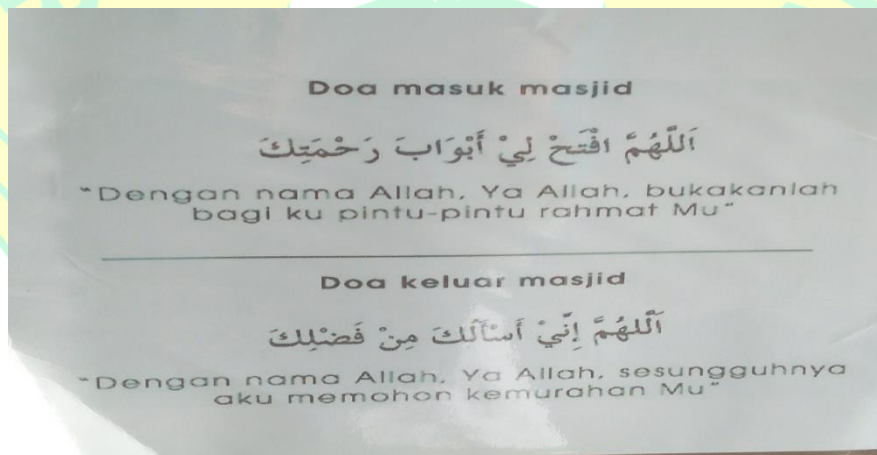 Doa masuk masjid
اَللّٰهُمَّ افْتَحْ لِيْ أَبْوَابَ رَحْمَتِكَ
"Dengan nama Allah, Ya Allah, bukakanlah
bagi ku pintu-pintu rahmat Mu"
Doa keluar masjid
اَللّٰهُمَّ إِنِّيْ أَسْأَلُكَ مِنْ فَضْلِكَ
"Dengan nama Allah, Ya Allah, sesungguhnya
aku memohon kemurahan Mu"